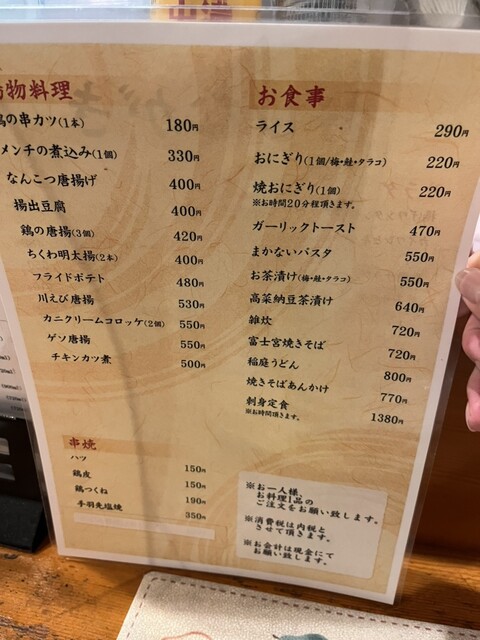 物料理
の串カツ(1本) 180円
メンチの煮込み(1個) 330円
なんこつ唐揚げ 400円
揚出豆腐 400円
鶏の唐揚(3個) 420円
ちくわ明太揚(2本) 400円
フライドポテト 480円
川えび唐揚 530円
カニクリームコロッケ(2個) 550円
ゲソ唐揚 550円
チキンカツ煮 500円
串焼
ハツ 150円
鶏皮 150円
鶏つくね 190円
手羽先塩焼 350円
お食事
ライス 290円
おにぎり(1個/梅・鮭・タラコ) 220円
焼おにぎり(1個) 220円
※お時間20分程頂きます。
ガーリックトースト 470円
まかないパスタ 550円
お茶漬け(梅・鮭・タラコ) 550円
高菜納豆茶漬け 640円
雑炊 720円
富士宮焼きそば 720円
稲庭うどん 800円
焼きそばあんかけ 770円
刺身定食 1380円
※お時間頂きます。
※お一人様、
お料理1品の
ご注文をお願い致します。
※消費税は内税と
させて頂きます。
※お会計は現金にて
お願い致します。